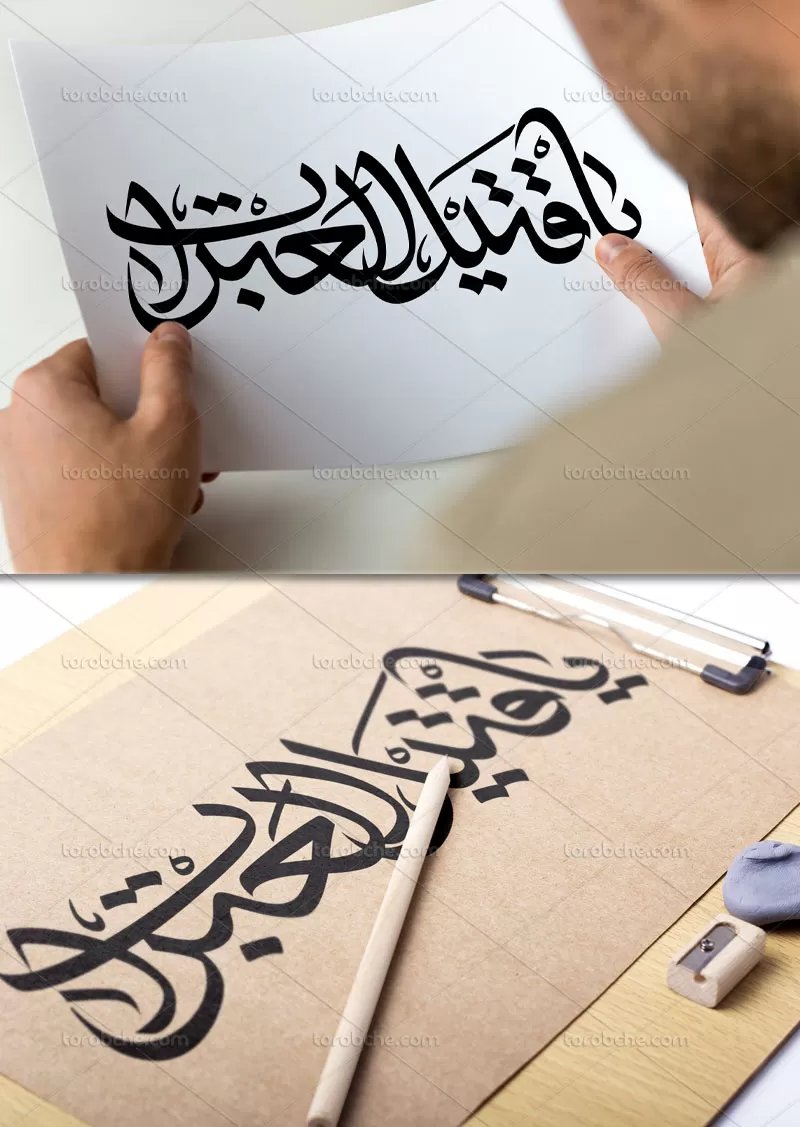 یا قتیل العبرات
torobche.com torobche.com torobche.com
torobche.com torobche.com torobche.com
torobche.com torobche.com torobche.com
یا قتیل العبرات
torobche.com torobche.com torobche.com
torobche.com torobche.com torobche.com
torobche.com torobche.com torobche.com